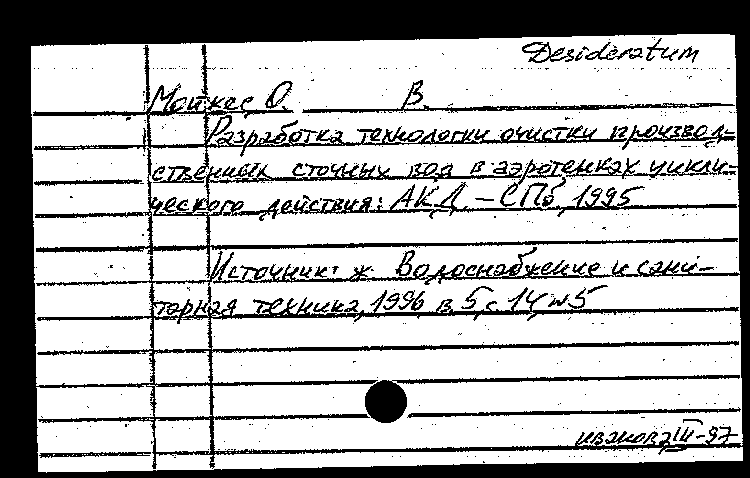 Desideratum
Мойкес О. В.
Разработка технологии очистки производ-
ственных сточных вод в аэротенках цикли-
ческого действия: АКД. – СПб, 1995
Источник: ж. Водоснабжение и сани-
тарная техника, 1996 в. 5, с. 14, №5
иванова III-97